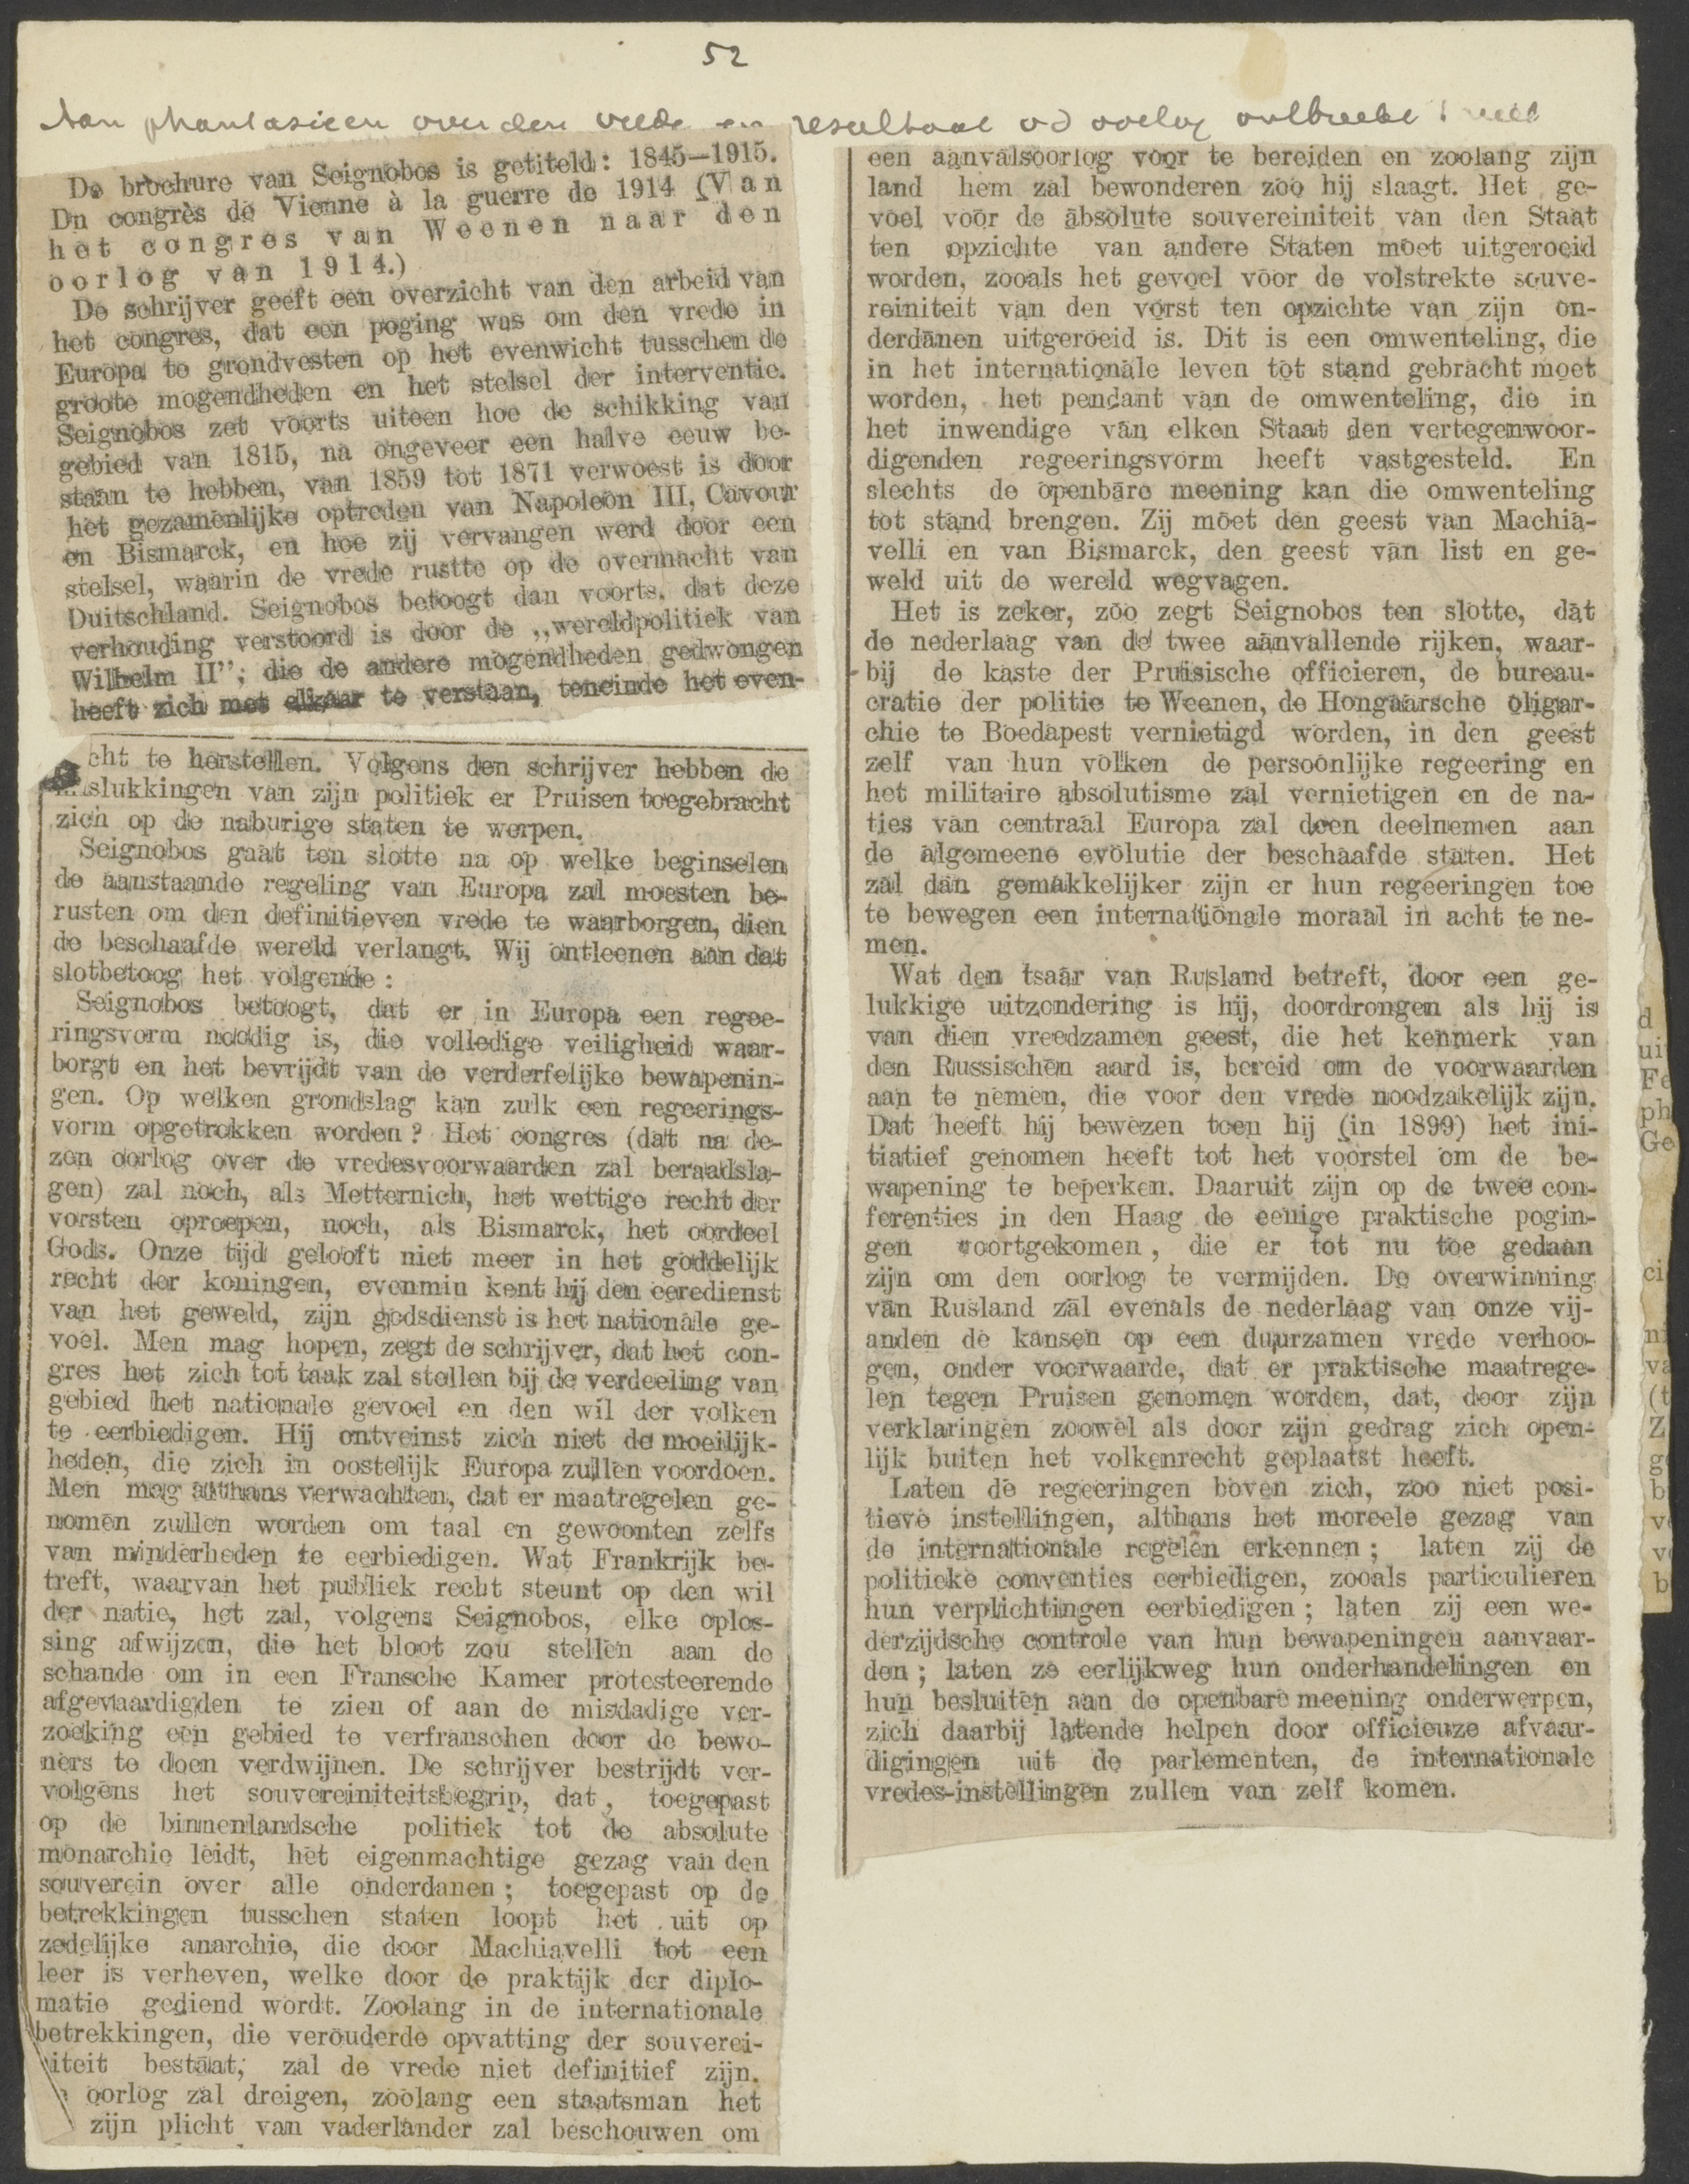 52
Aan phantasieen over den vrede en resultaat v d oorlog ontbreekt
De brochure van Seignobos is getiteld: 1845—1915.
Du congrès de Vienne à la guerre de 1914 (Van
het congres van Weenen naar den
oorlog van 1914.)
De schrijver geeft een overzicht van den arbeid van
het congres, dat een poging was om den vrede in
Europa te grondvesten op het evenwicht tusschen de
groote mogendheden en het stelsel der interventie.
Seignobos zet voorts uiteen hoe de schikking van
gebied van 1815, na ongeveer een halve eeuw be-
staan te hebben, van 1859 tot 1871 verwoest is door
het gezamenlijke optreden van Napoleon III, Cavour
en Bismarck, en hoe zij vervangen werd door een
stelsel, waarin de vrede rustte op de overmacht van
Duitschland. Seignobos betoogt dan voorts, dat deze
verhouding verstoord is door de „wereldpolitiek van
Wilhelm II”; die de andere mogendheden gedwongen
heeft zich met elkaar te verstaan, teneinde het even-
cht te herstellen. Volgens den schrijver hebben de
slukkingen van zijn politiek er Pruisen toegebracht
zich op de naburige staten te werpen.
Seignobos gaat ten slotte na op welke beginselen
de aanstaande regeling van Europa zal moesten be-
rusten om den definitieven vrede te waarborgen, dien
de beschaafde wereld verlangt. Wij ontleenen aan dat
slotbetoog het volgende:
Seignobos betoogt, dat er in Europa een regee-
ringsvorm noodig is, die volledige veiligheid waar-
borgt en het bevrijdt van de verderfelijke bewapenin-
gen. Op welken grondslag kan zulk een regeerings-
vorm opgetrokken worden? Het congres (dat na de-
zen oorlog over de vredesvoorwaarden zal beraadsla-
gen) zal noch, als Metternich, het wettige recht der
vorsten oproepen, noch, als Bismarck, het oordeel
Gods. Onze tijd gelooft niet meer in het goddelijk
recht der koningen, evenmin kent hij den eeredienst
van het geweld, zijn godsdienst is het nationale ge-
voel. Men mag hopen, zegt de schrijver, dat het con-
gres het zich tot taak zal stellen bij de verdeeling van
gebied het nationale gevoel en den wil der volken
te eerbiedigen. Hij ontveinst zich niet de moeilijk-
heden, die zich in oostelijk Europa zullen voordoen.
Men mag althans verwachten, dat er maatregelen ge-
nomen zullen worden om taal en gewoonten zelfs
van minderheden te eerbiedigen. Wat Frankrijk be-
treft, waarvan het publiek recht steunt op den wil
der natie, het zal, volgens Seignobos, elke oplos-
sing afwijzen, die het bloot zou stellen aan de
schande om in een Fransche Kamer protesteerende
afgevaardigden te zien of aan de misdadige ver-
zoeking een gebied te verfranschen door de bewo-
ners te doen verdwijnen. De schrijver bestrijdt ver-
volgens het souvereiniteitsbegrip, dat, toegepast
op de binnenlandsche politiek tot de absolute
monarchie leidt, het eigenmachtige gezag van den
souverein over alle onderdanen; toegepast op de
betrekkingen tusschen staten loopt het uit op
zedelijke anarchie, die door Machiavelli tot een
leer is verheven, welke door de praktijk der diplo-
matie gediend wordt. Zoolang in de internationale
betrekkingen, die verouderde opvatting der souverei-
iteit bestaat, zal de vrede niet definitief zijn.
oorlog zal dreigen, zoolang een staatsman het
zijn plicht van vaderlander zal beschouwen om
een aanvalsoorlog voor te bereiden en zoolang zijn
land hem zal bewonderen zoo hij slaagt. Het ge-
voel voor de absolute souvereiniteit van den Staat
ten opzichte van andere Staten moet uitgeroeid
worden, zooals het gevoel voor de volstrekte souve-
reiniteit van den vorst ten opzichte van zijn on-
derdanen uitgeroeid is. Dit is een omwenteling, die
in het internationale leven tot stand gebracht moet
worden, het pendant van de omwenteling, die in
het inwendige van elken Staat den vertegenwoor-
digenden regeeringsvorm heeft vastgesteld. En
slechts de openbare meening kan die omwenteling
tot stand brengen. Zij moet den geest van Machia-
velli en van Bismarck, den geest van list en ge-
weld uit de wereld wegvagen.
Het is zeker, zoo zegt Seignobos ten slotte, dat
de nederlaag van de twee aanvallende rijken, waar-
bij de kaste der Pruisische officieren, de bureau-
cratie der politie te Weenen, de Hongaarsche oligar-
chie te Boedapest vernietigd worden, in den geest
zelf van hun volken de persoonlijke regeering en
het militaire absolutisme zal vernietigen en de na-
ties van centraal Europa zal doen deelnemen aan
de algemeene evolutie der beschaafde staten. Het
zal dan gemakkelijker zijn er hun regeeringen toe
te bewegen een internationale moraal in acht te ne-
men.
Wat den tsaar van Rusland betreft, door een ge-
lukkige uitzondering is hij, doordrongen als hij is
van dien vreedzamen geest, die het kenmerk van
den Russischen aard is, bereid om de voorwaarden
aan te nemen, die voor den vrede noodzakelijk zijn.
Dat heeft hij bewezen toen hij (in 1899) het ini-
tiatief genomen heeft tot het voorstel om de be-
wapening te beperken. Daaruit zijn op de twee con-
ferenties in den Haag de eenige praktische pogin-
gen voortgekomen, die er tot nu toe gedaan
zijn om den oorlog te vermijden. De overwinning
van Rusland zal evenals de nederlaag van onze vij-
anden de kansen op een duurzamen vrede verhoo-
gen, onder voorwaarde, dat er praktische maatrege-
len tegen Pruisen genomen worden, dat, door zijn
verklaringen zoowel als door zijn gedrag zich open-
lijk buiten het volkenrecht geplaatst heeft.
Laten de regeeringen boven zich, zoo niet posi-
tieve instellingen, althans het moreele gezag van
de internationale regelen erkennen; laten zij de
politieke conventies eerbiedigen, zooals particulieren
hun verplichtingen eerbiedigen; laten zij een we-
derzijdsche controle van hun bewapeningen aanvaar-
den; laten ze eerlijkweg hun onderhandelingen en
hun besluiten aan de openbare meening onderwerpen,
zich daarbij latende helpen door officieuze afvaar-
digingen uit de parlementen, de internationale
vredes-instellingen zullen van zelf komen.